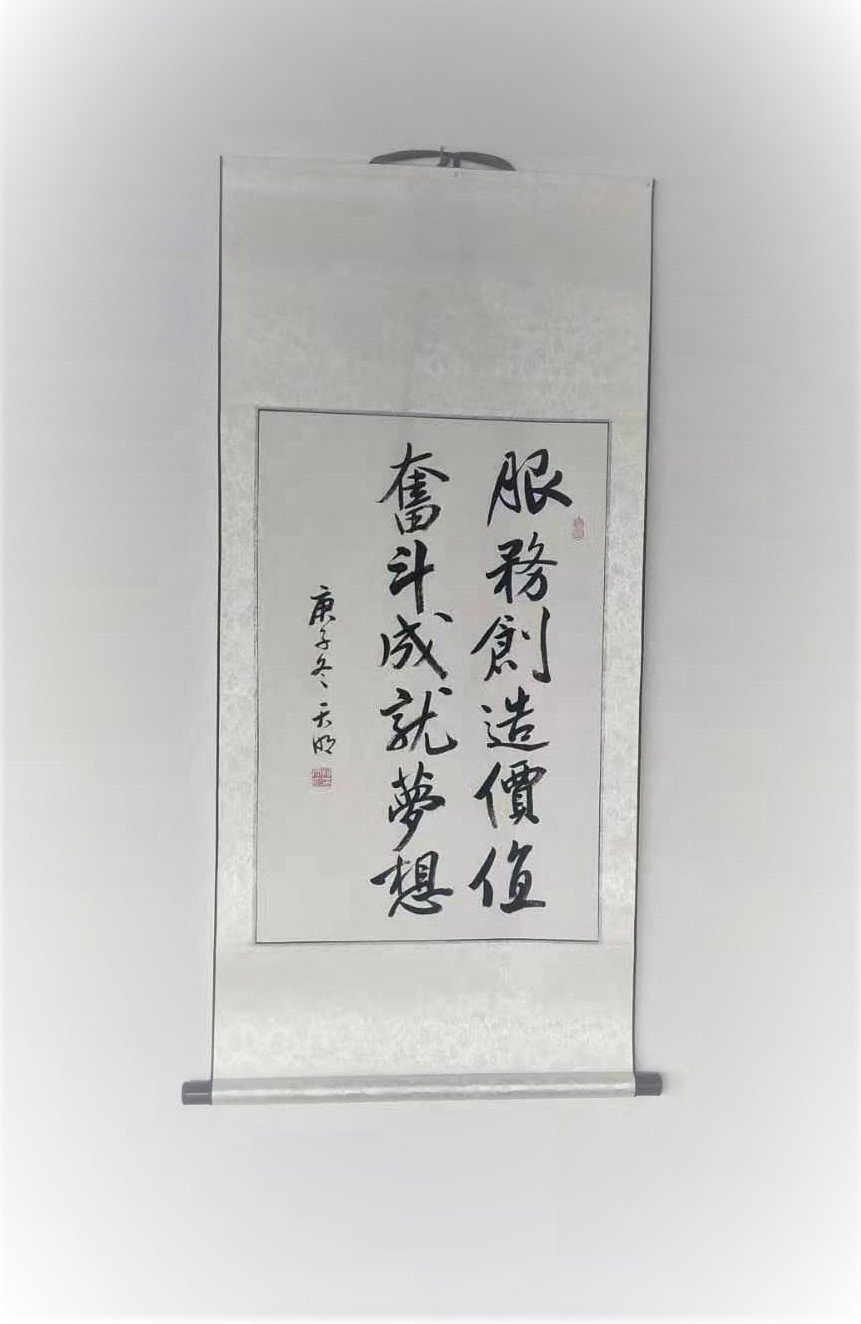 服務創造價值
奮斗成就夢想
庚子冬天明